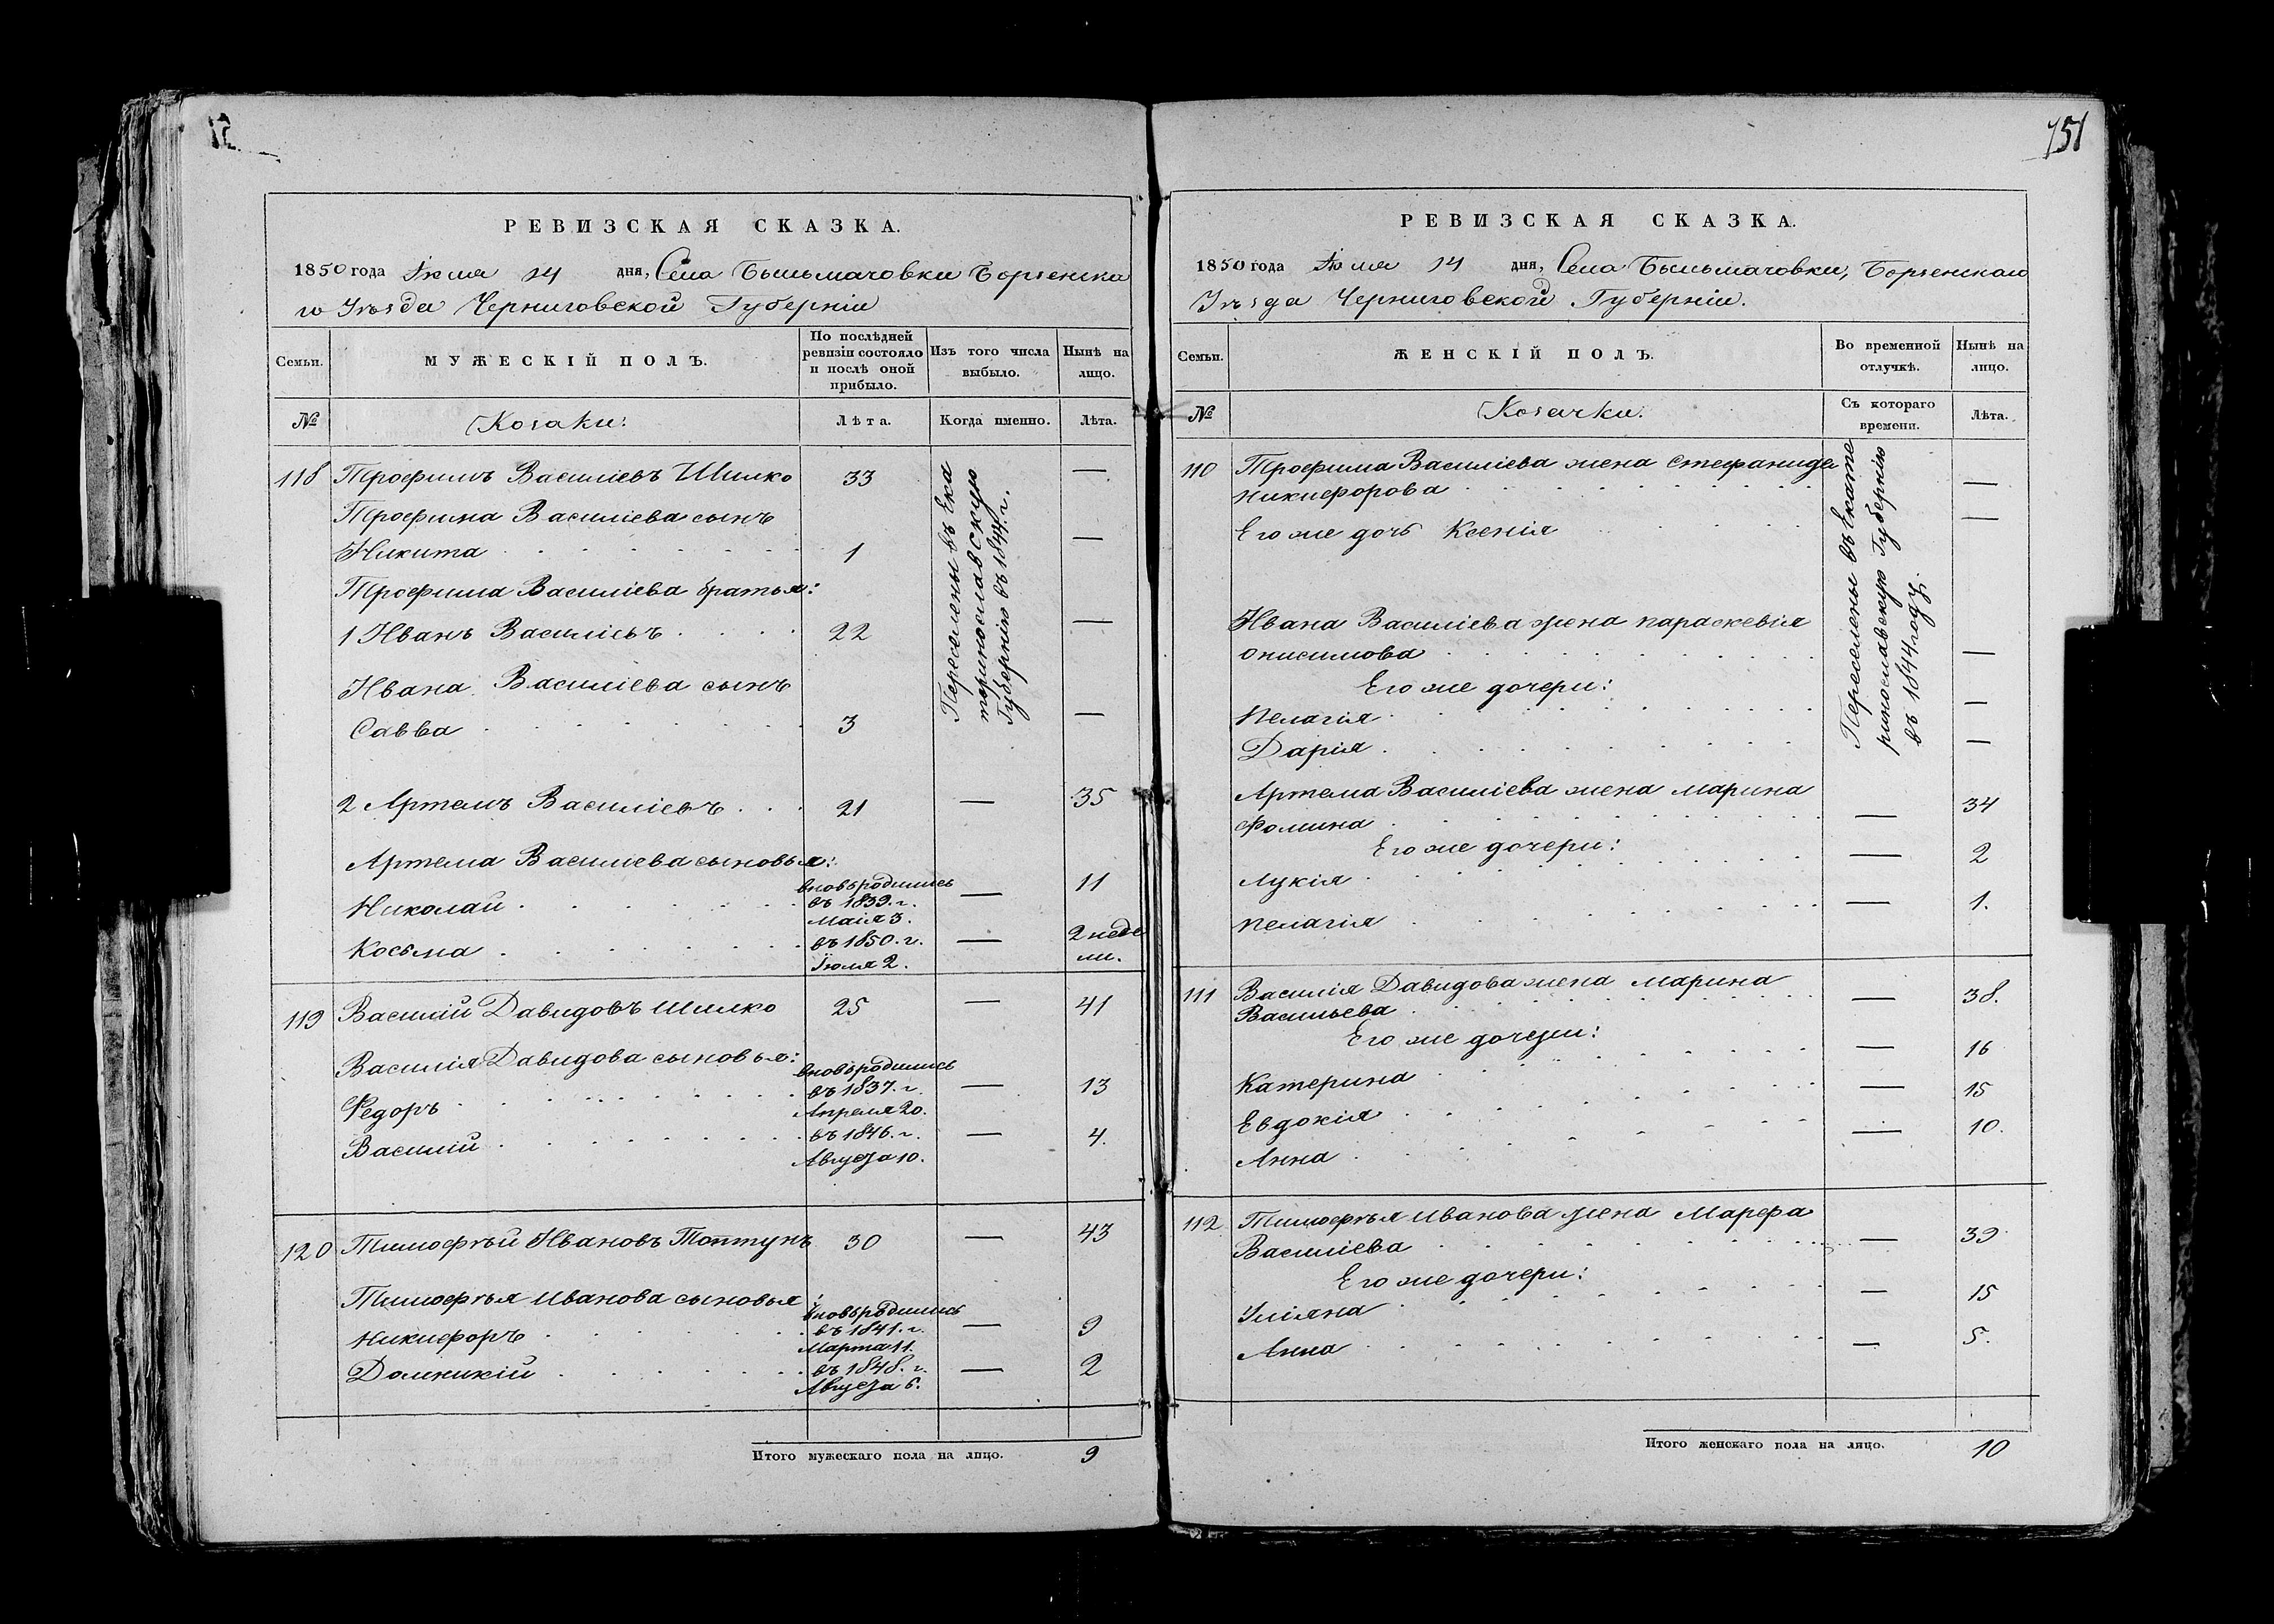 РЕВИЗСКАЯ СКАЗКА.
1850 года Іюля 14 дня, Села Бысьмачовки Борзенска
го Уѣзда Черниговской Губерніи
Семьи. МУЖЕСКІЙ ПОЛЪ. По послѣдней ревизіи состояло и послѣ оной прибыло. Изъ того числа выбыло. Нынѣ на лицо.
№ Козаки: Лѣта. Когда именно. Лѣта.
118 Трофимъ Василіевъ Шилко 33 —
Трофима Василіева сынъ
Никита 1 —
Трофима Василіева братья:
1 Иванъ Василіевъ 22 —
Ивана Василіева сынъ
Савва 3 —
Переселены въ Ека
теринославскую
Губернію въ 1844. г.
2 Артемъ Василіевъ 21 — 35
Артема Василіева сыновья:
вновь родились
Николай въ 1839. г. — 11
Маія 3.
Косьма въ 1850. г. — 2 неде
Іюля 2. ли.
119 Василій Давидовъ Шилко 25 — 41
Василія Давидова сыновья:
вновь родились
въ 1837. г. — 13
Федоръ Апреля 20.
Василій въ 1846. г. — 4.
Августа 10.
120 Тимофѣй Ивановъ Топтунъ 30 — 43
Тимофѣя Иванова сыновья:
вновь родились
Никифоръ въ 1841. г. — 9
Марта 11.
Домникій въ 1848. г. — 2
Августа 6.
Итого мужескаго пола на лицо. 9
151
РЕВИЗСКАЯ СКАЗКА.
1850 года Іюля 14 дня, Села Бысьмачовки, Борзенскаго
Уѣзда Черниговской Губерніи.
Семьи. ЖЕНСКІЙ ПОЛЪ. Во временной отлучкѣ. Нынѣ на лицо.
№ Козачки: Съ котораго времени. Лѣта.
110 Трофима Василіева жена Стефанида
Никифорова —
Его же дочь Ксенія —
Ивана Василіева жена Параскевія
Онисимова —
Его же дочери:
Пелагія —
Дарія —
Переселены въ Екате
ринославскую Губернію
въ 1844 году.
Артема Василіева жена Марина
Фомина — 34
Его же дочери:
Лукія — 2
Пелагія — 1.
111 Василія Давидова жена Марина
Васильева — 38.
Его же дочери:
Катерина — 16
Евдокія — 15
Анна — 10.
112 Тимофѣя Иванова жена Марфа
Василіева — 39
Его же дочери:
Уліяна — 15
Анна — 5.
Итого женскаго пола на лицо. 10